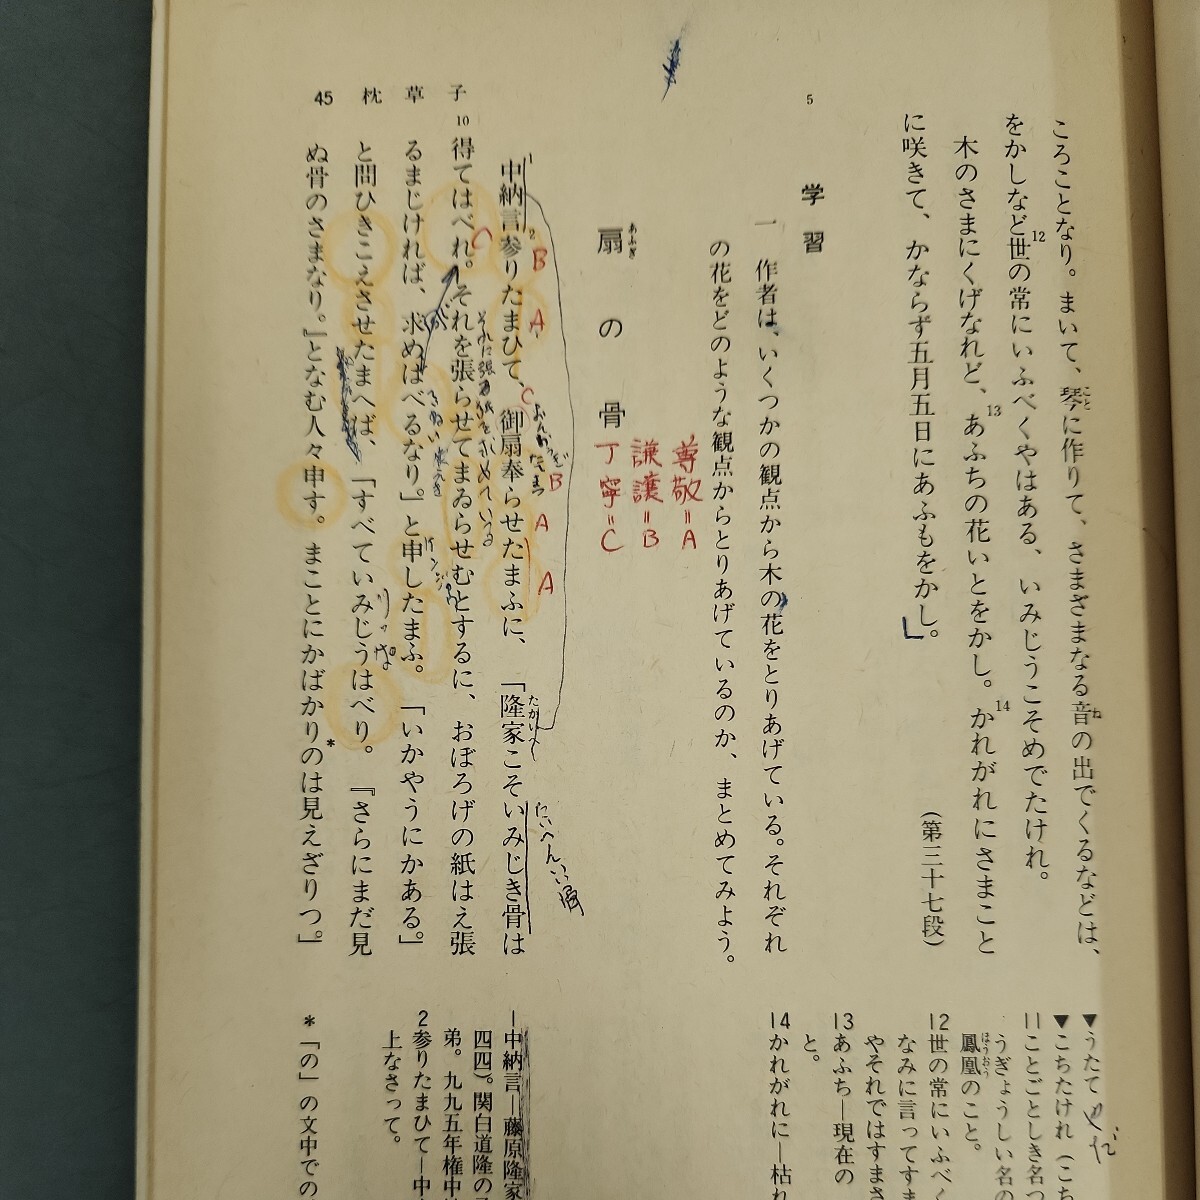 ころことなり。まいて、琴に作りて、さまざまなる音の出でくるなどは、
をかしなど世の常にいふべくやはある、いみじうこそめでたけれ。
木のさまにくげなれど、あふちの花いとをかし。かれがれにさまこと
に咲きて、かならず五月五日にあふもをかし。
(第三十七段)
5
学習
一 作者は、いくつかの観点から木の花をとりあげている。それぞれ
の花をどのような観点からとりあげているのか、まとめてみよう。
尊敬=A
謙譲=B
丁寧=C
扇の骨
あふぎ
中納言参りたまひて、御扇奉らせたまふに、「隆家こそいみじき骨は
得てはべれ。それを張らせてまゐらせむとするに、おぼろげの紙はえ張
るまじければ、求めはべるなり。』と申したまふ。「いかやうにかある。』
と問ひきこえさせたまへば、「すべていみじうはべり。『さらにまだ見
ぬ骨のさまなり。』となむ人々申す。まことにかばかりのは見えざりつ。』
たかいへ
B
A
C
B
A
A
C
10
45 枕草子
▼うたて
▼こちたけれ(こち
11ことごとしき名つ
うぎょうしい名の
鳳凰のこと。
ほうおう
12世の常にいふべく
なみに言ってすま
やそれではすまさ
13あふち—現在の
と。
14かれがれに—枯れ
1中納言—藤原隆家
四四)。関白道隆の子
弟。九九五年権中納
2参りたまひて—中
上なさって。
*「の」の文中での